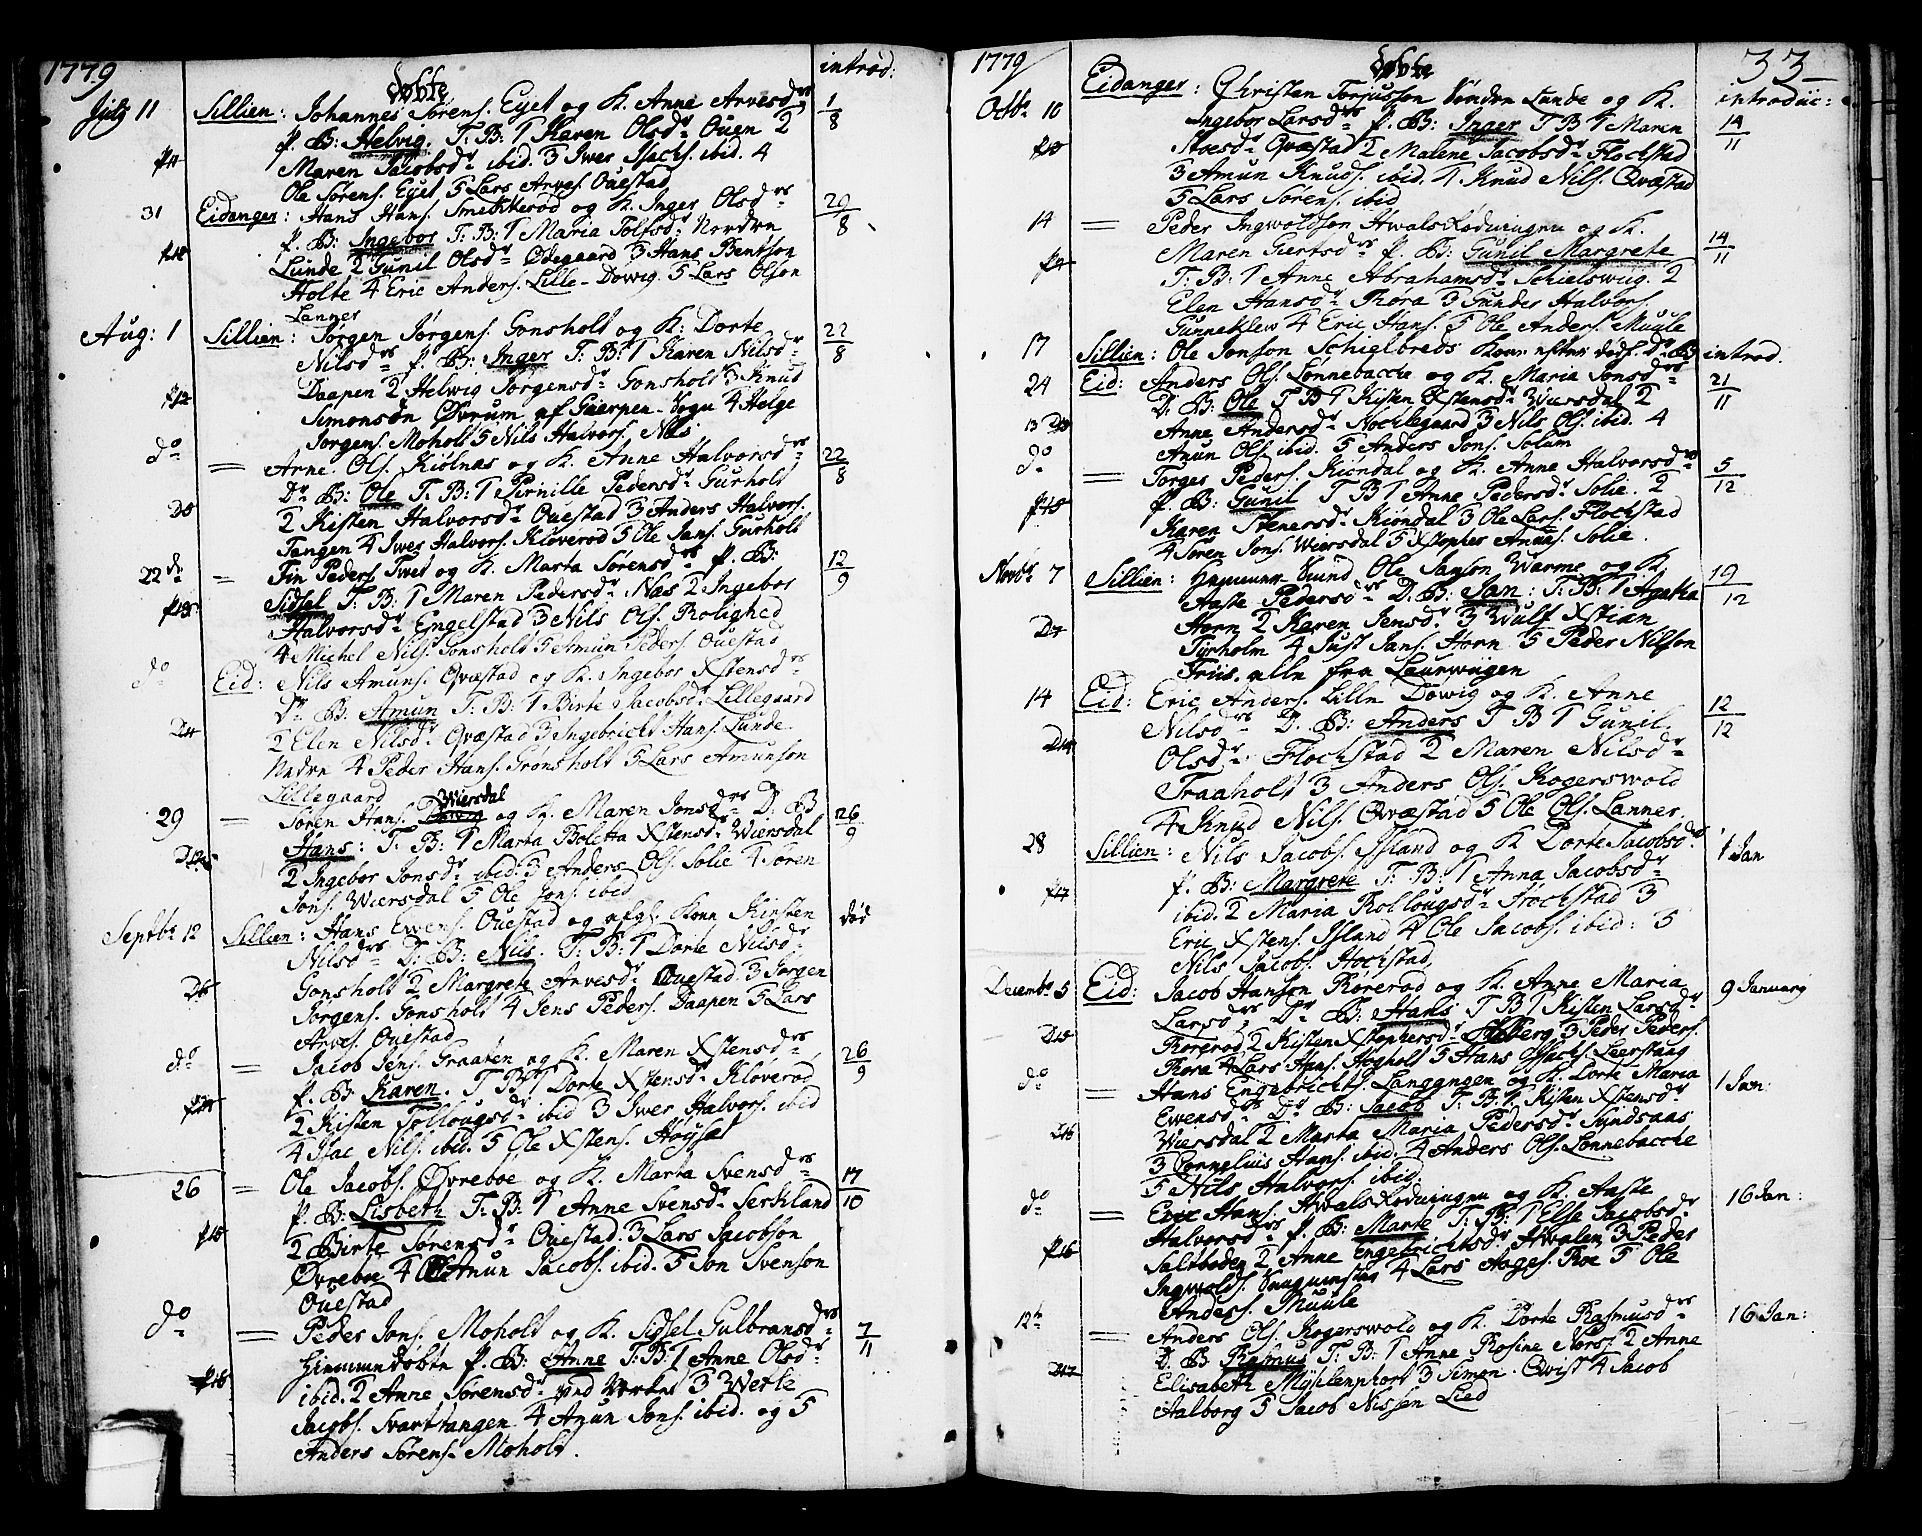 1779
Døbte
introd:
July 11
Sillien: Johannes Sørens. Eyet og K. Anne Arvesdr
1/8
P. B: Helvig. T. B: 1 Karen Olsdr Ouen 2
Maren Jacobsdr ibid. 3 Iwer Isachs. ibid. 4
Ole Sørens. Eyet 5 Lars Arves. Ouestad
31
Eidanger: Hans Hans. Smekkerød og K. Inger Olsdrs
29/8
P. B: Ingebor T: B: 1 Maria Tolfsdr Nordre
Lunde 2 Gunil Olsdr Ødegaard 3 Hans Bentson
Holte 4 Eric Anders. Lille-Dowig. 5 Lars Olson
Lanner
Aug: 1
Sillien: Jørgen Jørgens. Gonsholt og K: Dorte
22/8
Nilsdrs P. B: Inger T: B: 1 Karen Nilsdr
Daapen 2 Helwig Jørgensdr Gonsholt 3 Knud
Simonsøn Øvrum af Gierpen-Sogn 4 Helge
Jørgens. Moholt 5 Nils Halvors. Nes
do
= Arne Ols. Kiølnæs og K. Anne Halvorsdrs
22/8
Dr B: Ole T: B: 1 Pernille Pedersdr Gurholt
2 Kisten Halvorsdr Ouestad 3 Anders Halvors.
Tangen 4 Iwer Halvors. Kløverød 5 Ole Jans. Gurholt
22 de
= Fin Peders. Twet og K. Marta Sørensdrs P. B:
12/9
Sidsel T: B: 1 Maren Pedersdr Næs 2 Ingebor
Halvorsdr Engelstad 3 Nils Ols. Rolighed
4 Michel Nils. Gonsholt 5 Amun Peders. Ouestad
do
Eid: Nils Amuns. Qvæstad og K. Ingebor Xstensdrs
Dr B: Amun T: B: 1 Birte Jacobsdr Lillegaard
2 Elen Nilsdr Qvæstad 3 Ingebricht Hans. Lunde
Nedre 4 Peder Hans. Grønsholt 5 Lars Amunson
Lillegaard
29
= Søren Hans. Wiersdal og K. Maren Jonsdrs D: B
26/9
Hans: T: B: 1 Marta Boletta Xstensdr Wiersdal
2 Ingebor Jonsdr ibid. 3 Anders Ols. Solie 4 Søren
Jons. Wiersdal 5 Ole Jons. ibid
Septbr 12
Sillien: Hans Ewens. Ouestad og afgl. Kone Kirsten
død
Nilsdrs D: B: Nils. T: B: 1 Dorte Nilsdr
Gonsholt 2 Margrete Arvesdr Ouestad 3 Jørgen
Jorgens. Gonsholt 4 Jens Peders. Daapen 5 Lars
Arves. Ouestad
do
= Jacob Jens. Graaten og K. Maren Xstensdrs
26/9
P. B: Karen. T. B: 1 Dorte Xstensdr Kloverød
2 Kisten Tollougsdr ibid 3 Iwer Halvors. ibid
4 Isac Nils. ibid. 5 Ole Xstens. Høyset
26
= Ole Jacobs. Øvreboe og K. Marta Svensdrs
17/10
P. B: Lisbeth T: B: 1 Anne Svensdr Serkland
2 Birte Sørensdr Ouestad 3 Lars Jacobson
Øvreboe 4 Amun Jacobs. ibid. 5 Jon Svenson
Ouestad
do
= Peder Jons. Moholt og K. Sidsel Gulbransdrs
7/11
Hiemmedøbte P. B: Anne T: B: 1 Anne Olsdr
ibid. 2 Anne Sørensdr ved Verket 3 Wetle
Jacobs. Svarttangen 4 Anun Jons. ibid. og 5
Anders Sørens. Moholt.
1779
Døbte
33
introduc:
Octbr 10
Eidanger: Christen Torjusson Søndre Lunde og K.
Ingebor Larsdrs P. B: Inger T B 1 Maren
14/11
Moesdr Qvæstad 2 Malene Jacobsdr Flochstad
3 Amun Knuds. ibid. 4 Knud Nils. Qvæstad
5 Lars Sørens. ibid
14
= Peder Ingwoldson Hwals Rødningen og K.
Maren Giertsdrs P. B: Gunil Margrete
14/11
T: B: 1 Anne Abrahamsdr Schielswig. 2
Elen Hansdr Røra 3 Gunder Halvors.
Gunneklew 4 Eric Hans. 5 Ole Anders. Muule
17
Sillien: Ole Jonson Schielbreds Kone efter død f. Dr B introd.
24
Eid: Anders Ols. Lønnebacche og K. Maria Jonsdrs
21/11
D. B: Ole T B 1 Kisten Xstensdr Wiersdal 2
Anne Andersdr Nochlegaard 3 Nils Ols. ibid. 4
Anun Ols. ibid. 5 Anders Jons. Solum
do
= Torges Peders. Kiøndal og K. Anne Halvorsdrs
5/12
P. B: Gunil T B 1 Anne Pedersdr Solie. 2
Karen Stenersdr Kiøndal 3 Ole Lars. Flochstad
4 Søren Jons. Wiersdal 5 Xstopher Annas. Solie.
Novbr 7
Sillien: Ole Janson Warme og K.
19/12
Aaste Pedersdrs D. B: Jan: T: B: 1 Agatha
Horn 2 Karen Jensdr 3 Wulf Xstian
Tyrholm 4 Just Jans. Horn 5 Peder Nilson
Friis. alle fra Laurwigen
14
Eid: Eric Anders. Lille Dowig og K. Anne
12/12
Nilsdrs D. B: Anders T B 1 Gunil
Olsdr Flochstad 2 Maren Nilsdr
Traaholt 3 Anders Ols. Kogerswold
4 Knud Nils. Qvæstad 5 Ole Ols. Lanner.
28
Sillien: Nils Jacobs. Island og K Dorte Jacobsdrs
1 Jan
P. B: Margrete T: B: 1 Anna Jacobsdr
ibid. 2 Maria Rollougsdr Hochstad 3
Eric Xstens. Island 4 Ole Jacobs. ibid: 5
Nils Jacobs. Hochstad
Decembr 5
Eid: Jacob Hanson Rorerød og K. Anne Maria
9 January
Larsdr, Dr B: Hans T B 1 Kisten Larsdr
Rorerød 2 Kisten Xstophersdr Holberg 3 Peder Peders.
Røra 4 Lars Hans. Høgholt 5 Hans Isachs. Leerstang
do
= Hans Engebrichts. Langangen og K. Dorte Maria
1 Jan:
Ewensdrs Dr B: Jacob T: B: 1 Kisten Xstensdr
Wiersdal 2 Marta Maria Pedersdr Syndsaas
3 Cornelius Hans. ibid. 4 Anders Ols. Lønnebacche
5 Nils Halvors. ibid
do
= Eric Hans. Hwals Rødningen og K. Aaste
16 Jan:
Halvorsdrs P. B: Marte T: B: 1 Else Jacobsdr
Saltboden 2 Anne Engebrichtsdr Hwalen 3 Peder
Ingwolds. 4 Lars Aages. Roe 5 Ole
Anders. Muule
12te
= Anders Ols. Kogerswold og K. Dorte Rasmusdrs
16 Jan:
D. B Rasmus T: B: 1 Anne Rosine Nors. 2 Anne
Elisabeth Myhlenphort 3 Simon Qvist 4 Jacob
Aalborg 5 Jacob Nissen Lied